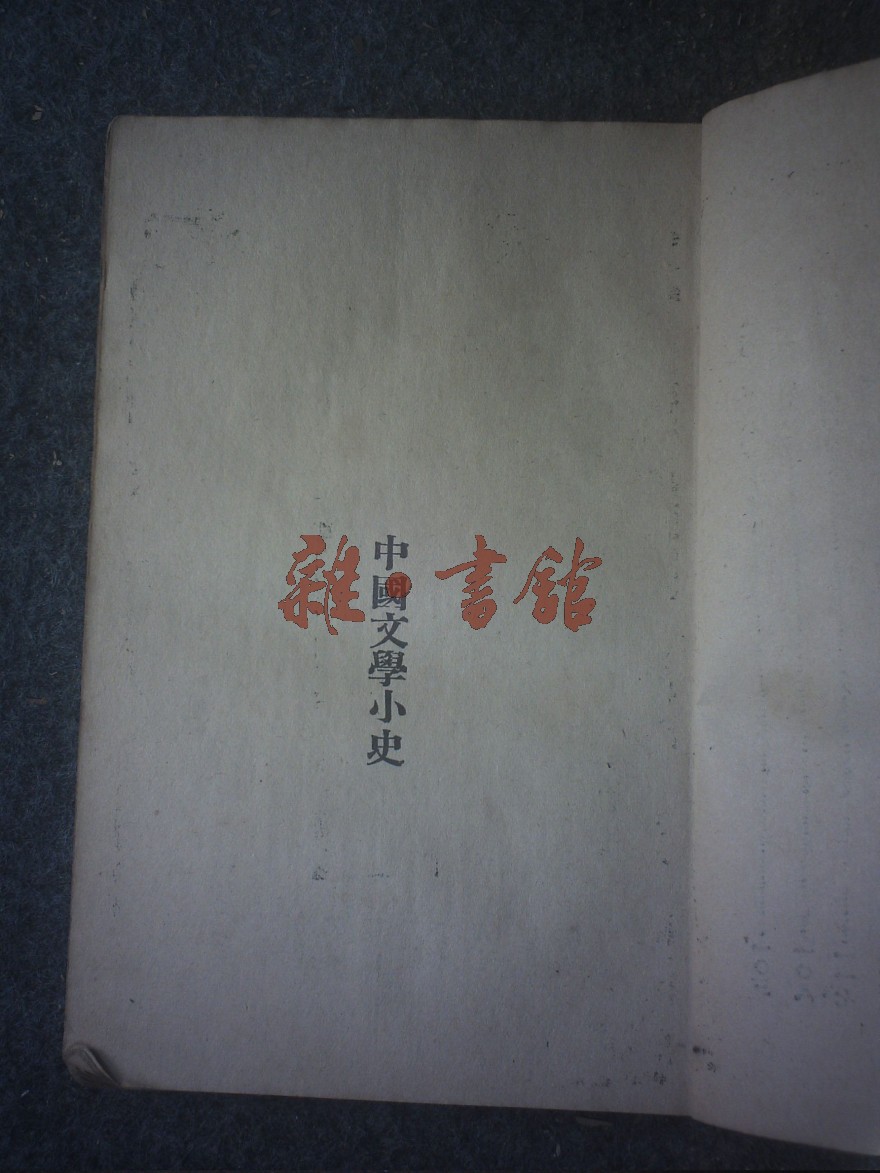 中國文學小史
雜·書館